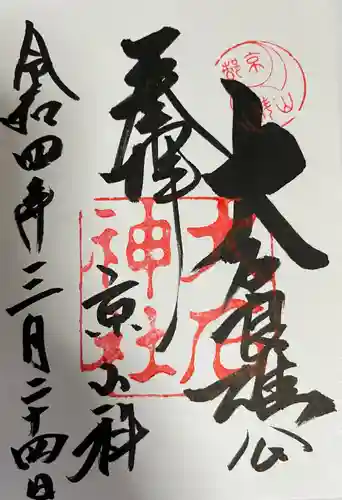 京都
山科
大石良雄公
奉拝
大石
神社
京山科
令和四年三月二十四日